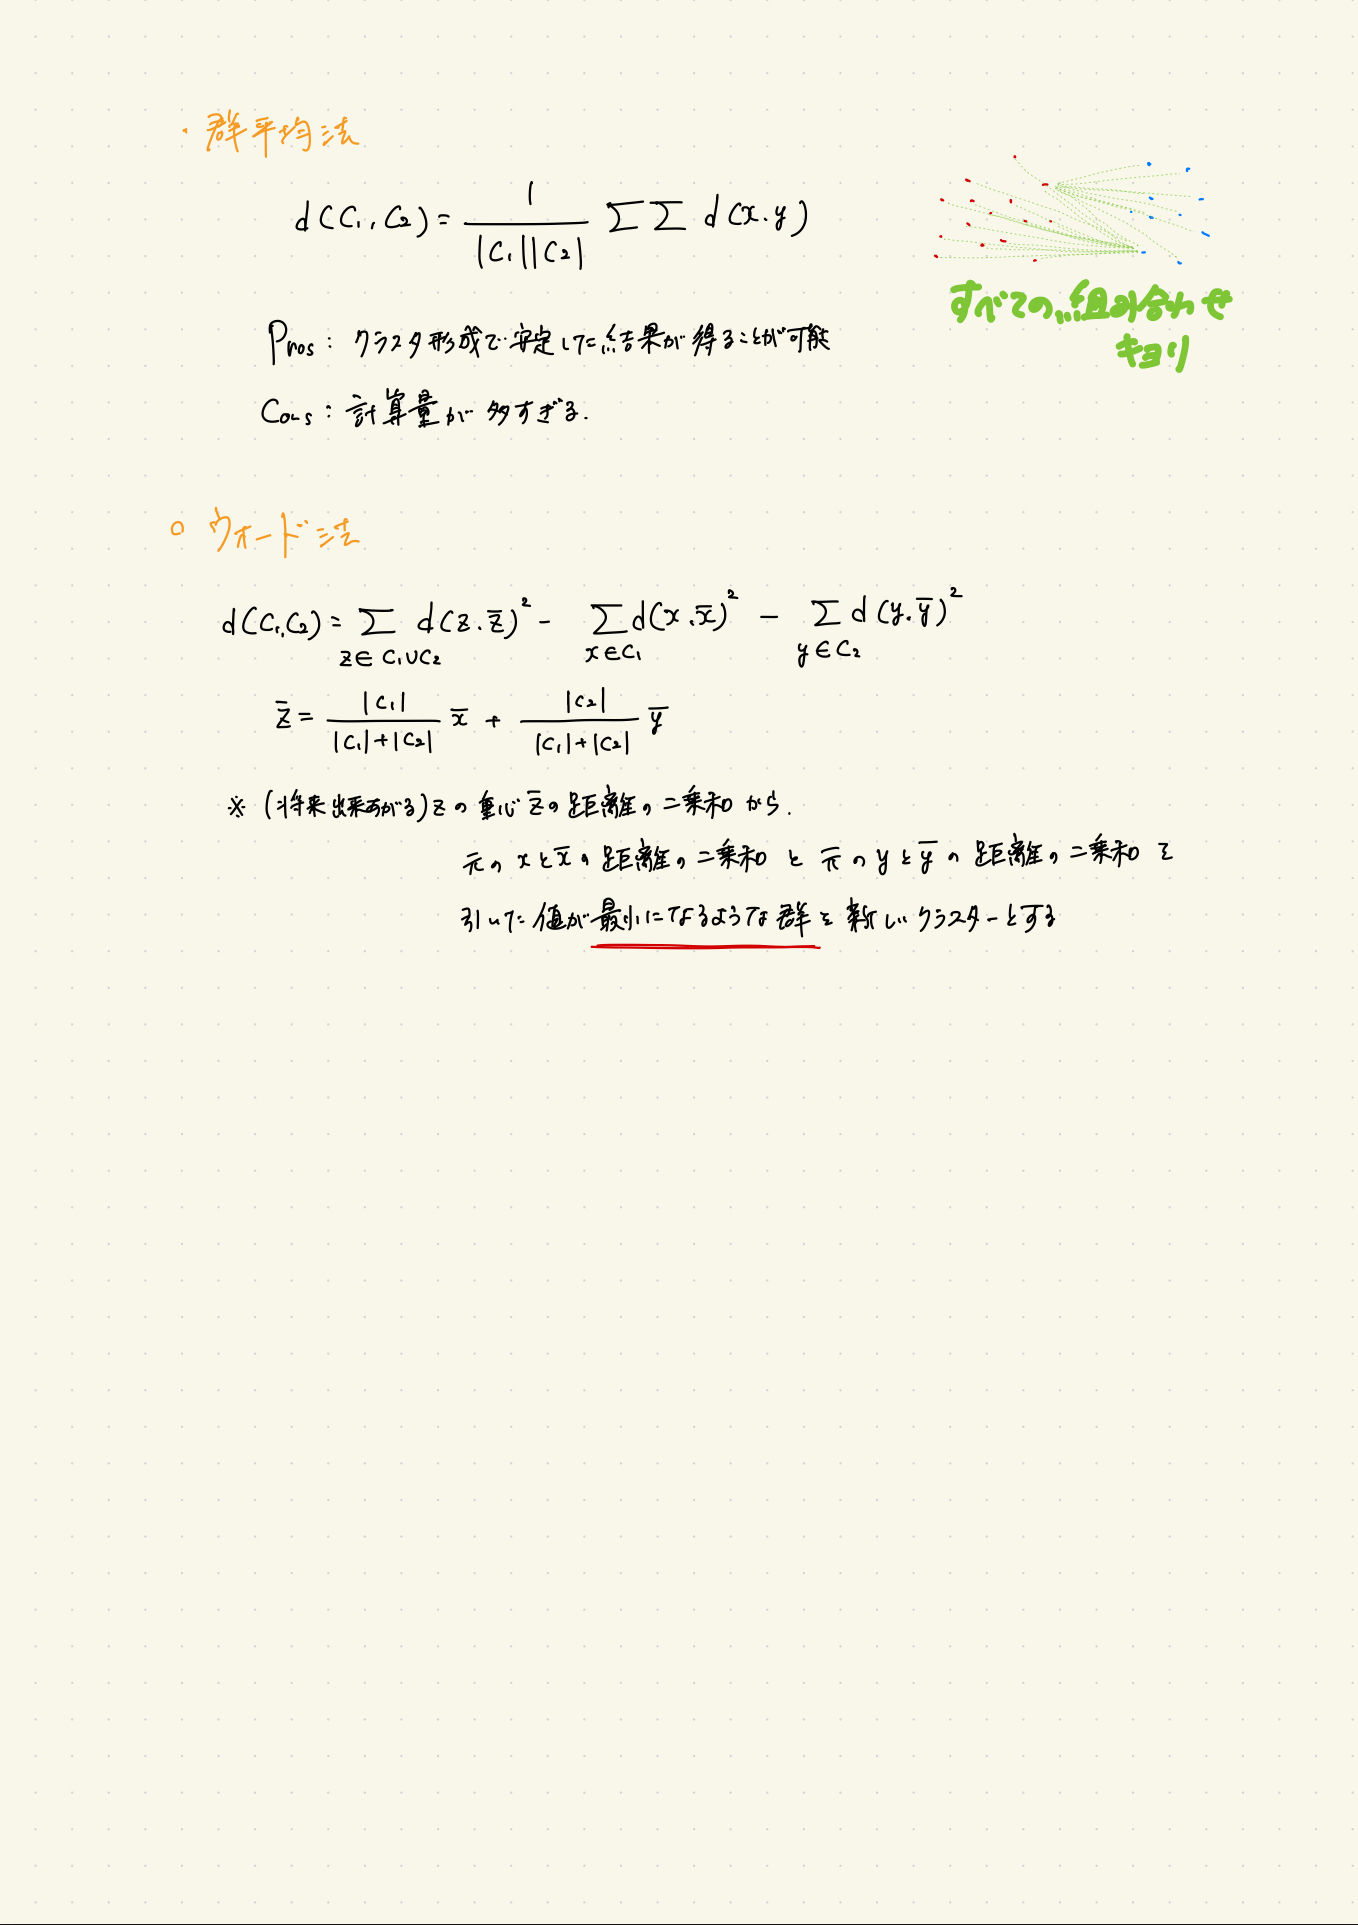 ・群平均法
d(C₁, C₂) = 1/(|C₁||C₂|) ΣΣ d(x.y)
すべての組み合わせ
キョリ
Pros : クラスタ形成で安定した結果が得ることが可能
Cons : 計算量が多すぎる.
○ ウォード法
d(C₁,C₂) = Σ_{z∈C₁∪C₂} d(z.z̄)² - Σ_{x∈C₁} d(x.x̄)² - Σ_{y∈C₂} d(y.ȳ)²
z̄ = |C₁|/(|C₁|+|C₂|) x̄ + |C₂|/(|C₁|+|C₂|) ȳ
※ (将来出来あがる) zの重心z̄の距離の二乗和から.
元のxとx̄の距離の二乗和と元のyとȳの距離の二乗和を
引いた値が最小になるような群を新しいクラスターとする